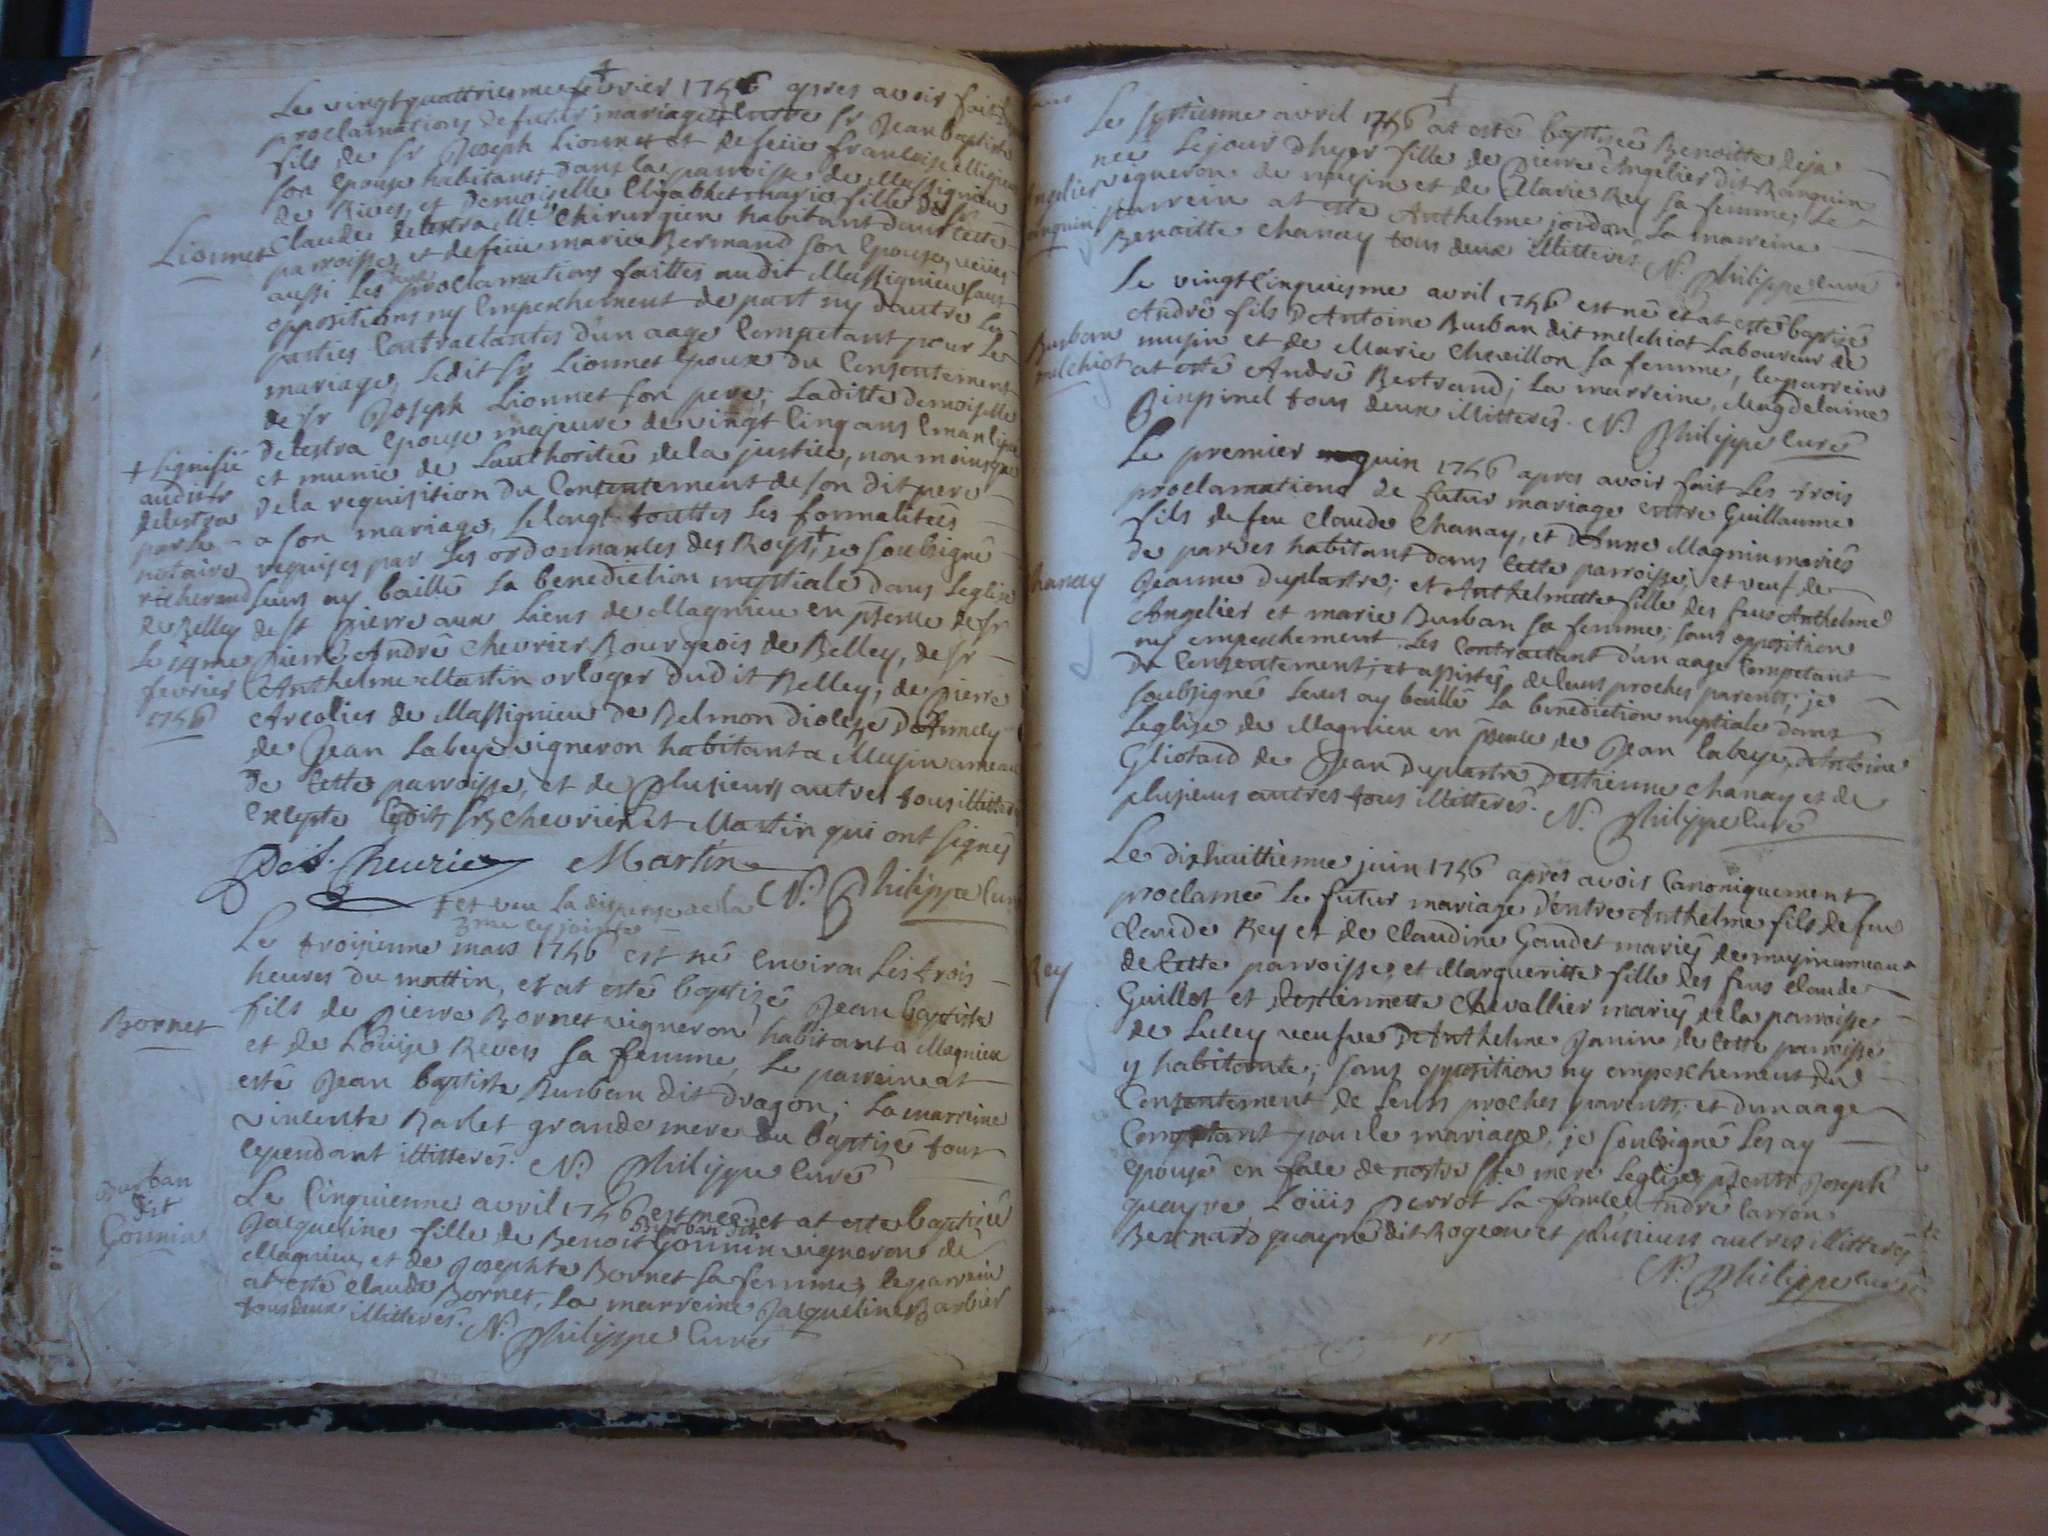 Le vingtquattriesme febvrier 1746 apres avoir fait
proclamations de futur mariage entre sr Jean baptiste
fils de sr Joseph Lionnet et de feüe francoise
son epouse habitant dans la parroisse de Massignieu
de Rives, et Demoiselle Elizabhet marie fille de sr
Lionnet
Claude delestra Me Chirurgien habitant dans cette
parroisse, et de feüe marie Bermand son epouse, veües
aussi les proclamations faittes audit Massignieu sans
oppositions ny empeschement de part ny dautre les
parties contractantes d'un aage competant pour le
mariage, ledit sr Lionnet epoux du consentement
de sr Joseph Lionnet son pere; laditte demoiselle
delestra epouse majeure de vingt cinq ans emancipée
et munie de lauthoritée de la justice, non moins que
de la requisition du consentement de son dit pere
a son mariage, selongt touttes les formalitées
requises par les ordonnances des Roys+, je soubsigné
leurs ay baillé la benediction nuptiale dans leglise
de st pierre aux liens de Magnieu en psence de sr
pierre André Chevrier Bourgeois de Belley, de sr
Anthelme Martin orloger dudit Belley, de pierre
Arcolier de Massignieu de Belmon diocize
de Jean Labeye vigneron habitant a Musin ameau
de cette parroisse, et de plusieurs autres tous illitterés
excepte lesdits srs chevrier et Martin qui ont signés
+ signifié
audit sr
delestra
par le
notaire
richerand
de Belley
le 14me
fevrier
1746
Chevrier Martin
N. Philippe curé
+ et veu la dispense de la
3me cy jointe
Le troisienne mars 1746 est né environ les trois
heures du mattin, et at esté baptizé Jean baptiste
fils de pierre Bornet vigneron habitant a Magnieu
Bornet
et de Loüise Revers sa femme, le parrein at
esté Jean baptiste Burban dit dragon; la marreine
vincente Barlet grande mere du baptizé tous
cependant illitterés. N. Philippe curé
Burban
dit
Gonnin
Le cinquienne avril 1746 est neé et at esté baptizeé
Jacqueline fille de Benoit Burban dit Gonnin vigneron de
Magnieu, et de Josephte Bornet sa femme, le parrein
at esté claude Bornet, la marreine Jacqueline Barbier
tous deux illitterés. N. Philippe curé
Le septienne avril 1746 at esté baptizeé Benoitte deja
neé le jour dhyer fille de pierre Angelier dit Ranguin
vigneron de musin et de Claire Rey sa femme, le
parrein at esté Anthelme jordan la marreine
Benoitte chanay tous deux illitterés N. Philippe curé
Le vingt cinquiesme avril 1746 est né et at esté baptizé
André fils d'Antoine Burban dit melchiot Laboureur de
Burban
melchiot
musin et de Marie Chevillon sa femme, le parrein
at esté André Bertrand; la marreine, Magdelaine
tous deux illitterés. N. Philippe curé
Le premier juin 1746 apres avoir fait les trois
proclamations de futur mariage entre Guillaume
fils de feu claude Chanay, et d'Anne Magnin mariés
de parves habitant dans cette parroisse; et veuf de
Chanay
Jeanne Duplastre; et Anthelmette fille des feus Anthelme
Angelier et marie Burban sa femme; sans opposition
ny empeschement les contractant d'un aage competant
du consentement, et assistés de leurs proches parents; je
soubsigné leurs ay baillé la benediction nuptiale dans
leglise de Magnieu en psence de Jean labeye, d'Antoine
Gliotard de Jean Duplastre d'estienne chanay et de
plusieurs autres tous illitterés. N. Philippe curé
Le dixhuittienne juin 1746 apres avoir canoniquement
proclameé le futur mariage d'entre Anthelme fils de feu
claude Rey et de claudine Goudet mariés de musin ameau
Rey
de cette parroisse, et Margueritte fille des feus claude
Guillot et d'estiennette Chevallier mariés de la parroisse
de Lucey veufve d'Anthelme Janin de cette parroisse
y habitante; sans opposition ny empeschement du
consentement de leurs proches parents, et d'un aage
competant pour le mariage, je soubsigné les ay
epousé en face de nostre ste mere leglise, psents Joseph
quayne, Loüis perrot la André carron
Bernard quayne dit Rogeon et plusieurs autres illitterés
N. Philippe curé